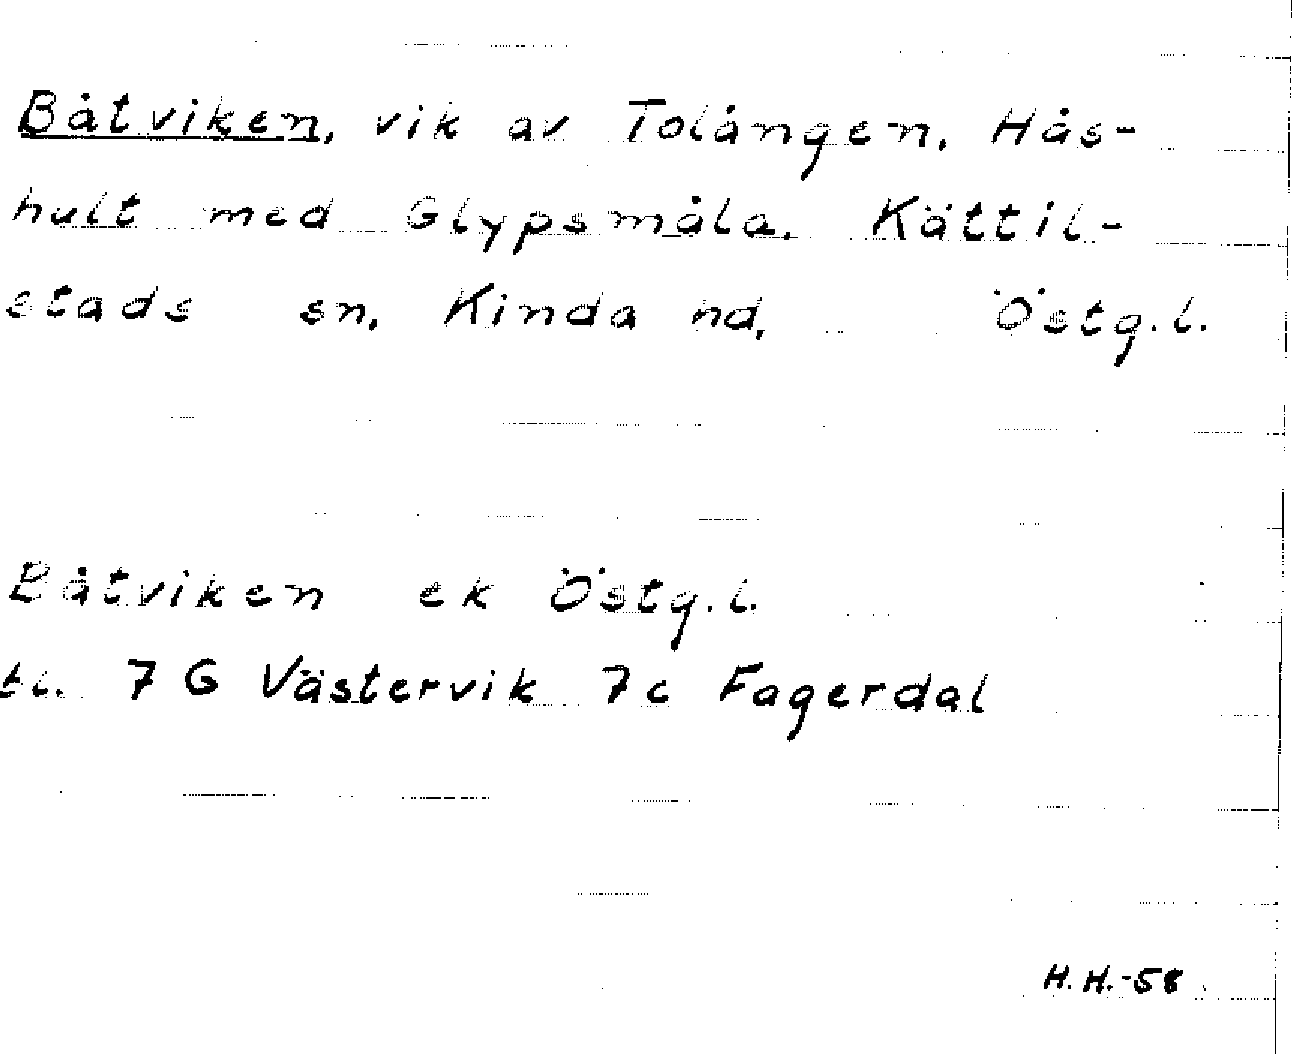 Båtviken, vik av Tolången. Hås-
hult med Glypsmåla. Kättil-
stads sn. Kinda hd. Östg.l.
Båtviken ek Östg.l.
tl. 7 G Västervik 7c Fagerdal
H.H.-58